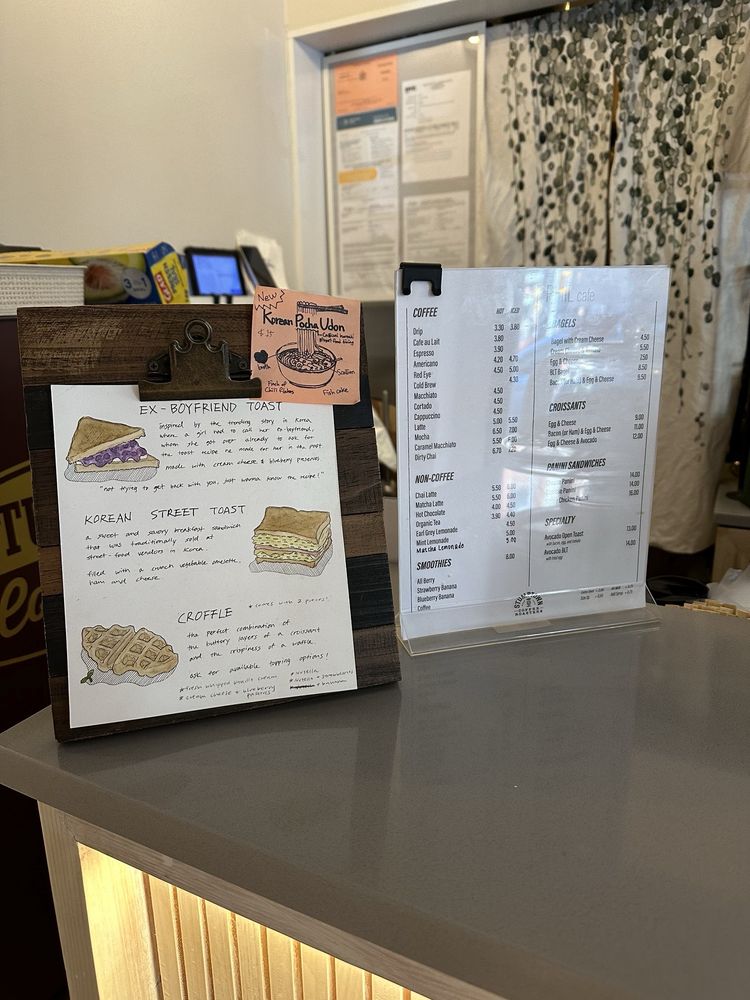 New!
Korean Pocha Udon
$15
Scallion
broth
Pinch of
Chili flakes
Fish cake
EX-BOYFRIEND TOAST
inspired by the trending story in Korea,
where a girl had to call her ex-boyfriend,
whom she got over already to ask for
the toast recipe he made for her in the past.
made with cream cheese & blueberry preserves.
"not trying to get back with you, just wanna know the recipe!"
KOREAN STREET TOAST
a sweet and savory breakfast sandwich
that was traditionally sold at
street-food vendors in Korea.
filled with a crunch vegetable omelette,
ham and cheese.
CROFFLE
* comes with 2 pieces!
the perfect combination of
the buttery layers of a croissant
and the crispiness of a waffle.
ask for available topping options!
* fresh whipped vanilla cream
* cream cheese + blueberry preserves
* nutella
* nutella + strawberries
+ banana
COFFEE
HOT ICED
Drip 3.30 3.80
Cafe au Lait 3.80
Espresso 3.90
Americano 4.20 4.70
Red Eye 4.50 5.00
Cold Brew 4.30
Macchiato 4.50
Cortado 4.50
Cappuccino 4.50
Latte 5.00 5.50
Mocha 6.50 7.00
Caramel Macchiato 5.50 6.00
Dirty Chai 6.70
NON-COFFEE
Chai Latte 5.50
Matcha Latte 5.50 6.00
Hot Chocolate 4.00 4.50
Organic Tea 3.90 4.40
Earl Grey Lemonade 4.50
Mint Lemonade 5.00
Matcha Lemonade 5.00
SMOOTHIES 8.00
All Berry
Strawberry Banana
Blueberry Banana
Coffee
cafe
BAGELS
Bagel with Cream Cheese 4.50
5.50
Egg & Cheese 7.50
BLT Bagel 8.50
& Egg & Cheese 9.50
CROISSANTS
Egg & Cheese 9.00
Bacon (or Ham) & Egg & Cheese 11.00
Egg & Cheese & Avocado 12.00
PANINI SANDWICHES
Panini 14.00
Panini 14.00
Chicken Panini 16.00
SPECIALTY
Avocado Open Toast 13.00
with bacon, egg, and tomato
Avocado BLT 14.00
with fried egg
COFFEE
ROASTERS
GLAD
3 in 1